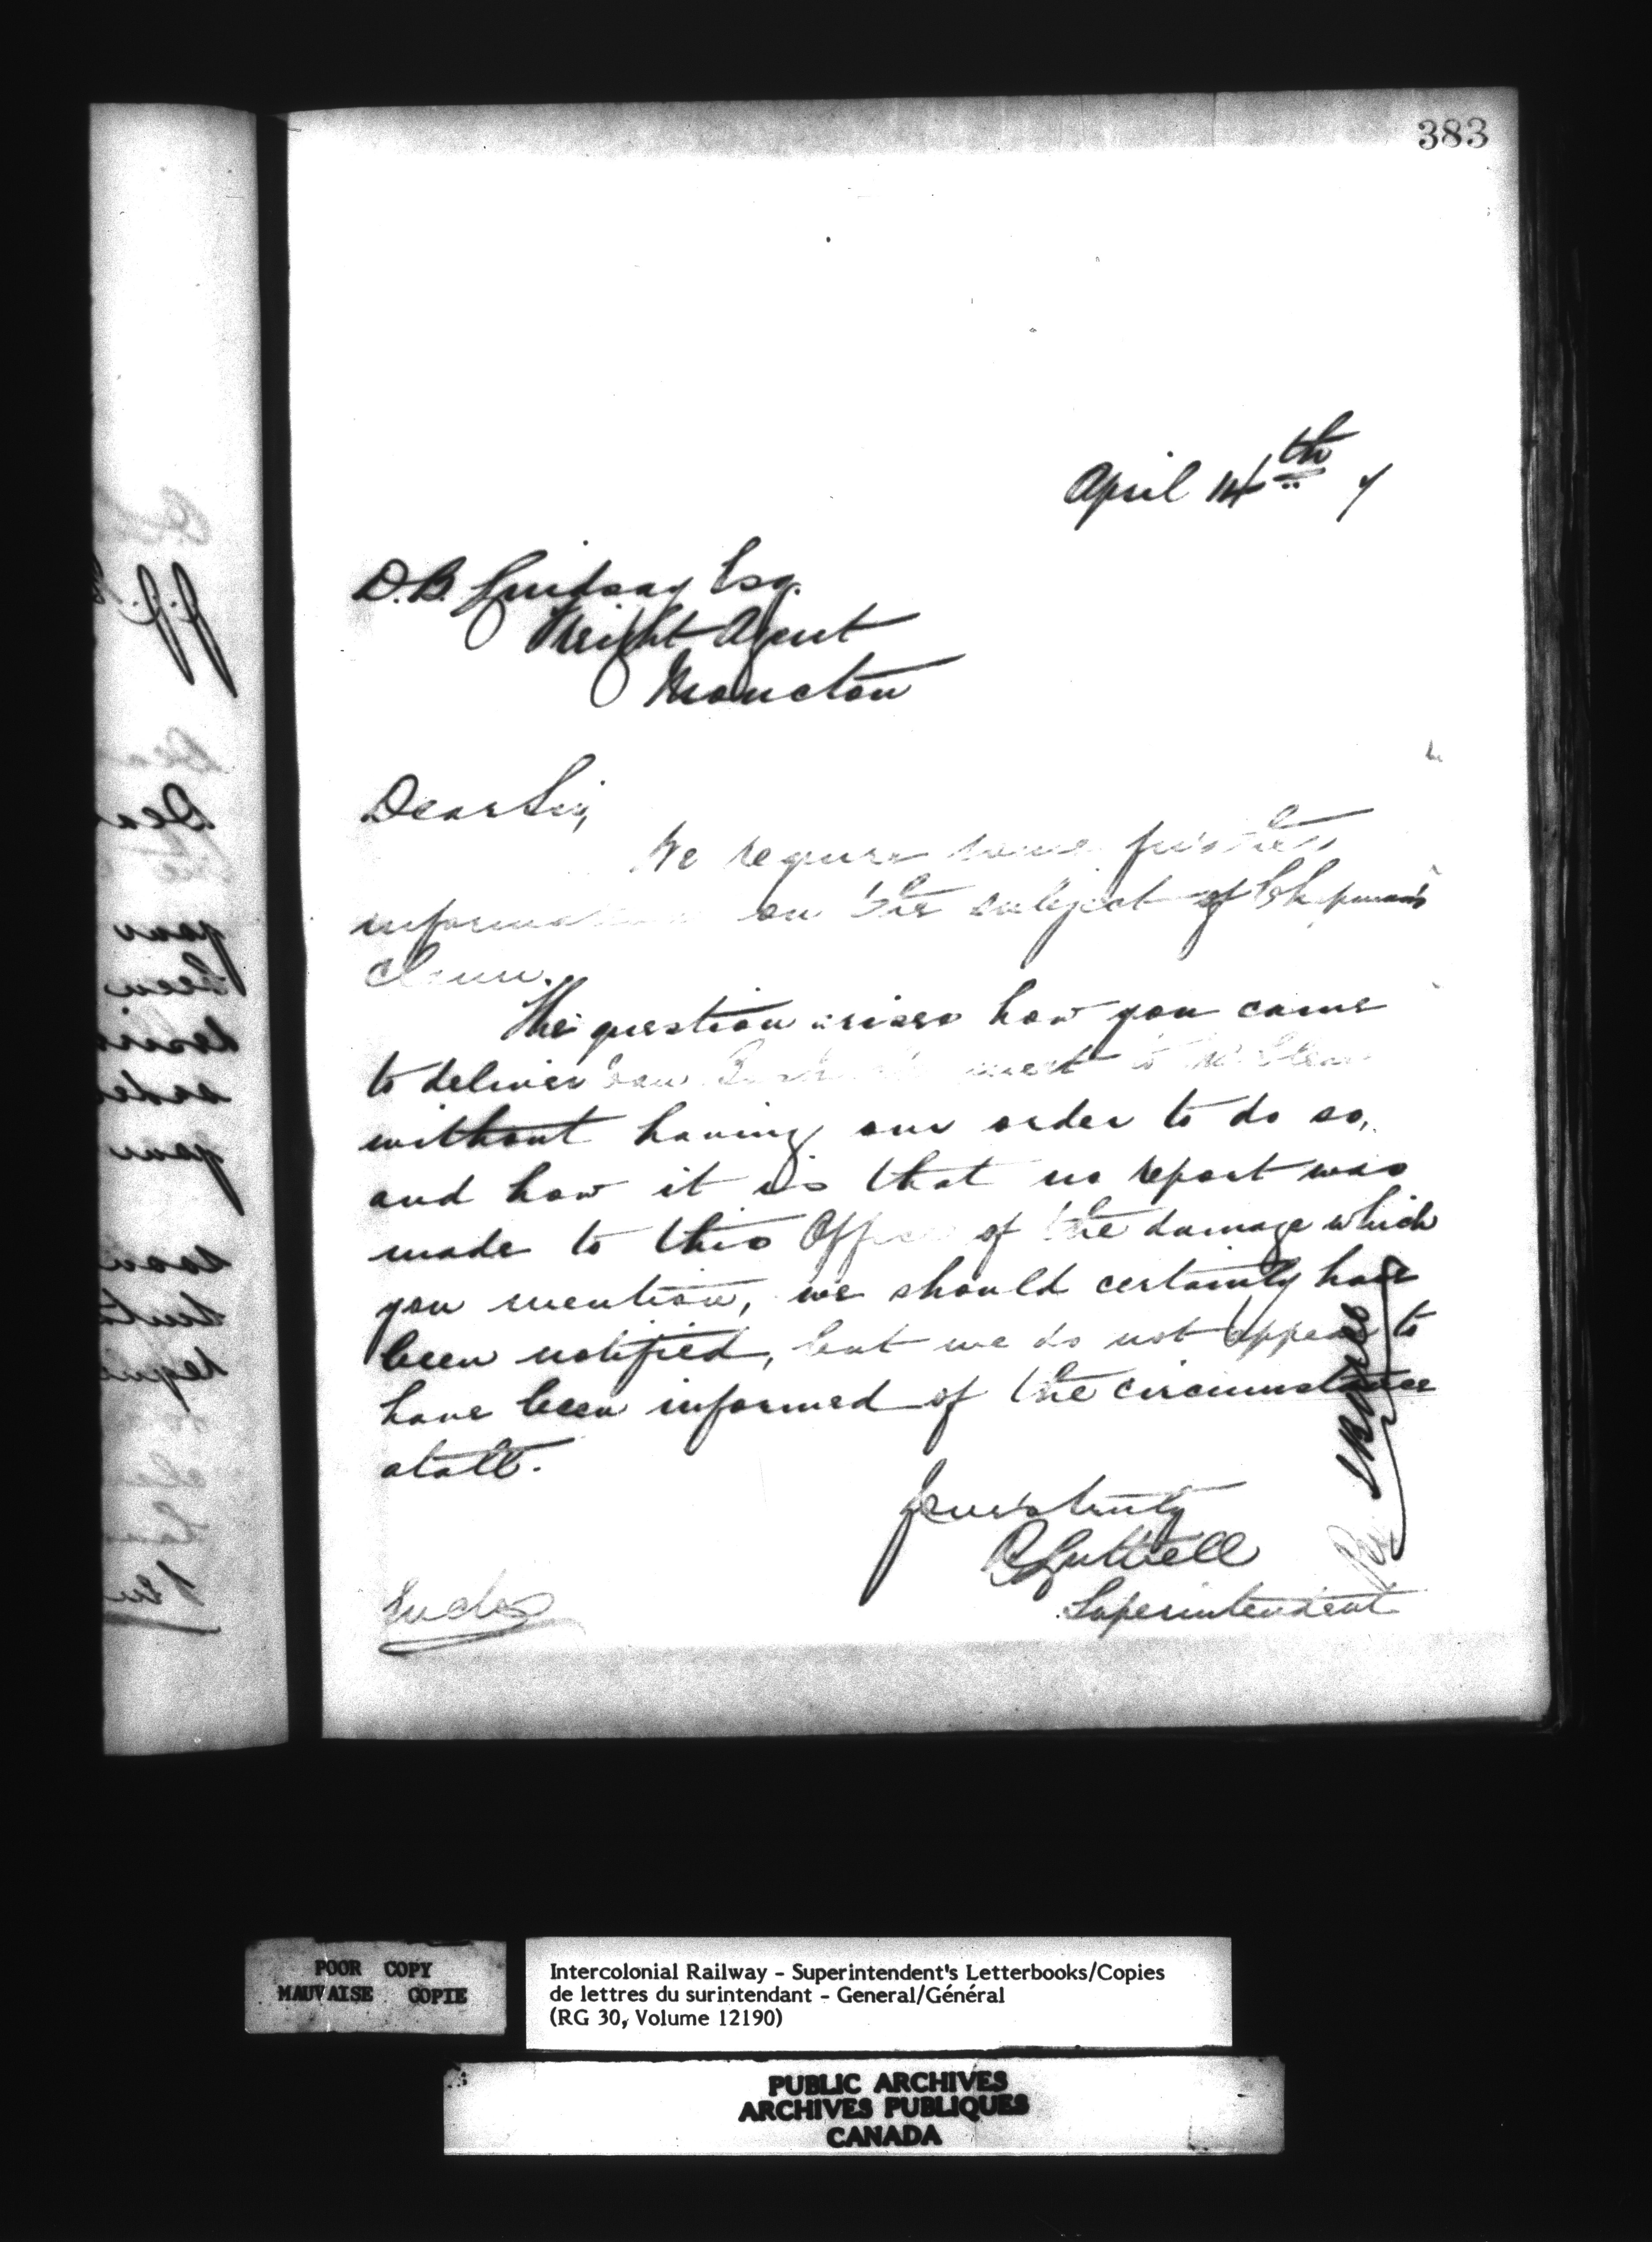 383
April 14th 7
D.B. Lindsay Esq.
Freight Agent
Moncton
Dear Sir,
We require some further
information on the subject of Chapman's
claim.
The question arises how you came
to deliver to
without having our order to do so,
and how it is that no report was
made to this Office of the damage which
you mention, we should certainly have
been notified, but we do not appear to
have been informed of the circumstance
atall.
Yours truly
Luttrell
Superintendent
Enclos
POOR COPY
MAUVAISE COPIE
Intercolonial Railway - Superintendent's Letterbooks/Copies
de lettres du surintendant - General/Général
(RG 30, Volume 12190)
PUBLIC ARCHIVES
ARCHIVES PUBLIQUES
CANADA